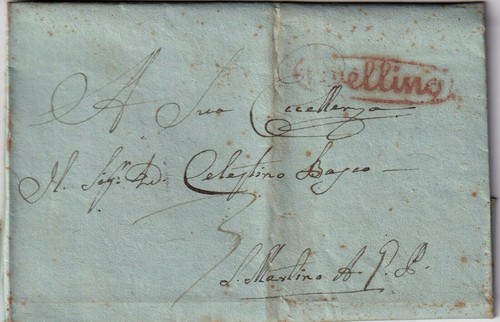 Avellino
A Sua Eccellenza
Il Sigr. D. Celestino Basco
3
S. Martino A. P. P.